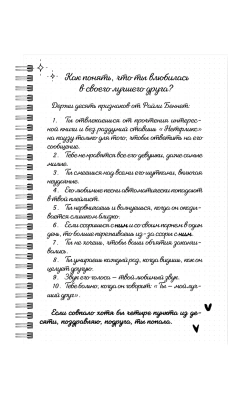 Как понять, что ты влюбилась
в своего лучшего друга?
Держи десять признаков от Рейли Беннет:
1. Ты отвлекаешься от прочтения интерес-
ной книги и без раздумий ставишь «Нетфликс»
на паузу только для того, чтобы ответить на его
сообщение.
2. Тебе не нравятся все его девушки, даже самые
милые.
3. Ты смеешься над всеми его шутками, включая
неудачные.
4. Его любимые песни автоматически попадают
в твой плейлист.
5. Ты нервничаешь и волнуешься, когда он оказы-
вается слишком близко.
6. Если ссоришься с ним и со своим парнем в один
день, то больше переживаешь из-за ссоры с ним.
7. Ты не хочешь, чтобы ваши объятия заканчи-
вались.
8. Ты умираешь каждый раз, когда видишь, как он
целует другую.
9. Звук его голоса – твой любимый звук.
10. Тебе больно, когда он говорит: «Ты – мой луч-
ший друг».
Если совпало хотя бы четыре пункта из де-
сяти, поздравляю, подруга, ты попала.